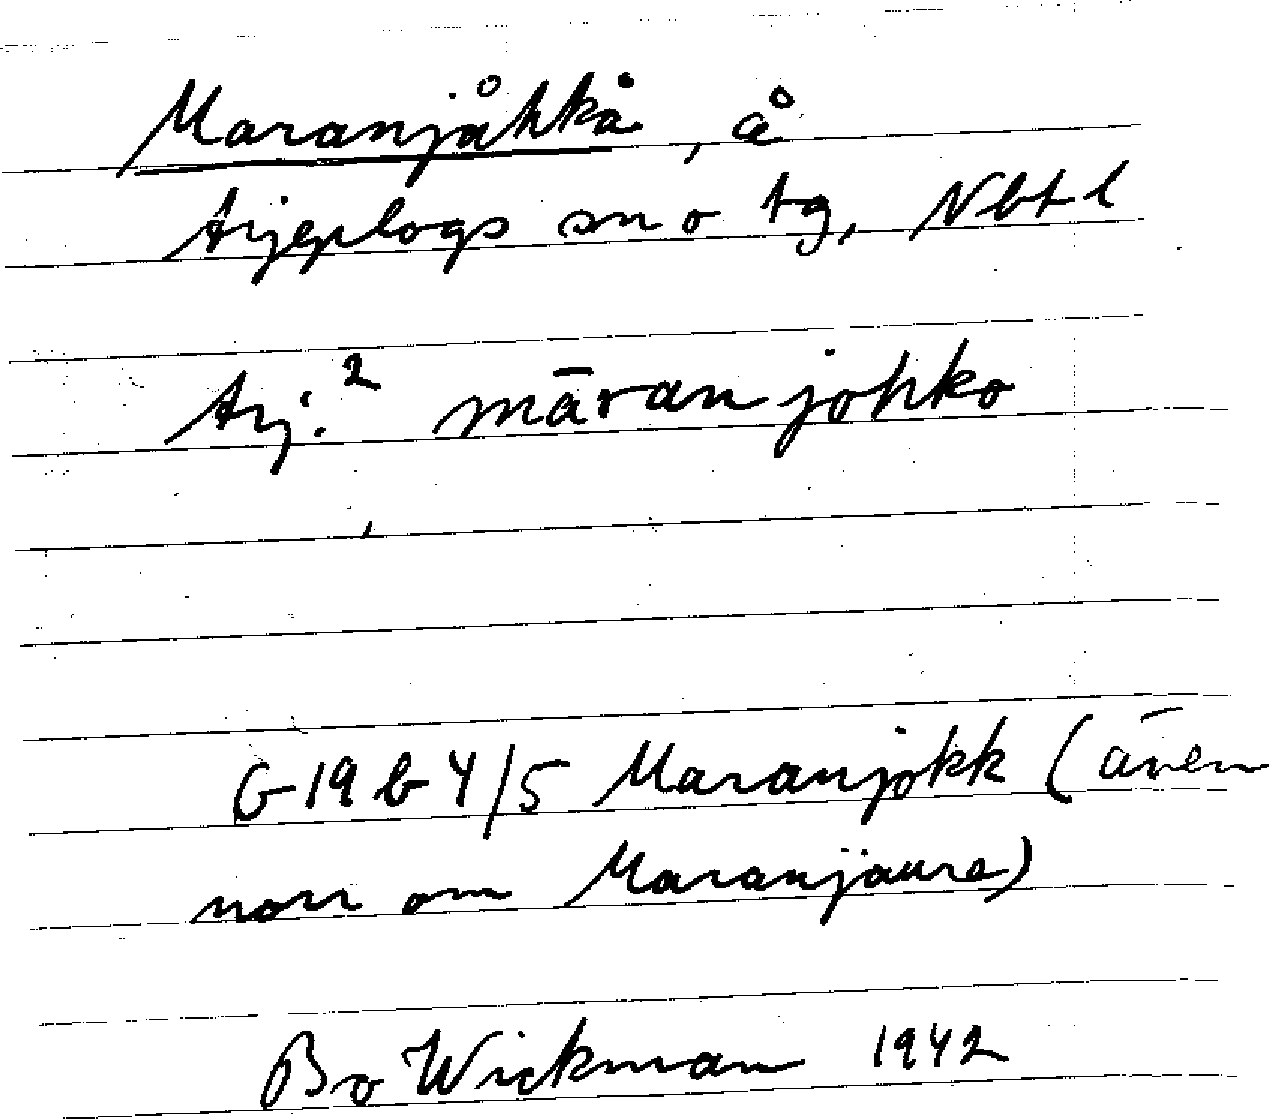 Maranjåhkå, å
Arjeplogs sn o tg, Nbtl
Arj.² māran johko
G 19 b 4/5 Maranjokk (även
norr om Maranjaure)
Bo Wickman 1942